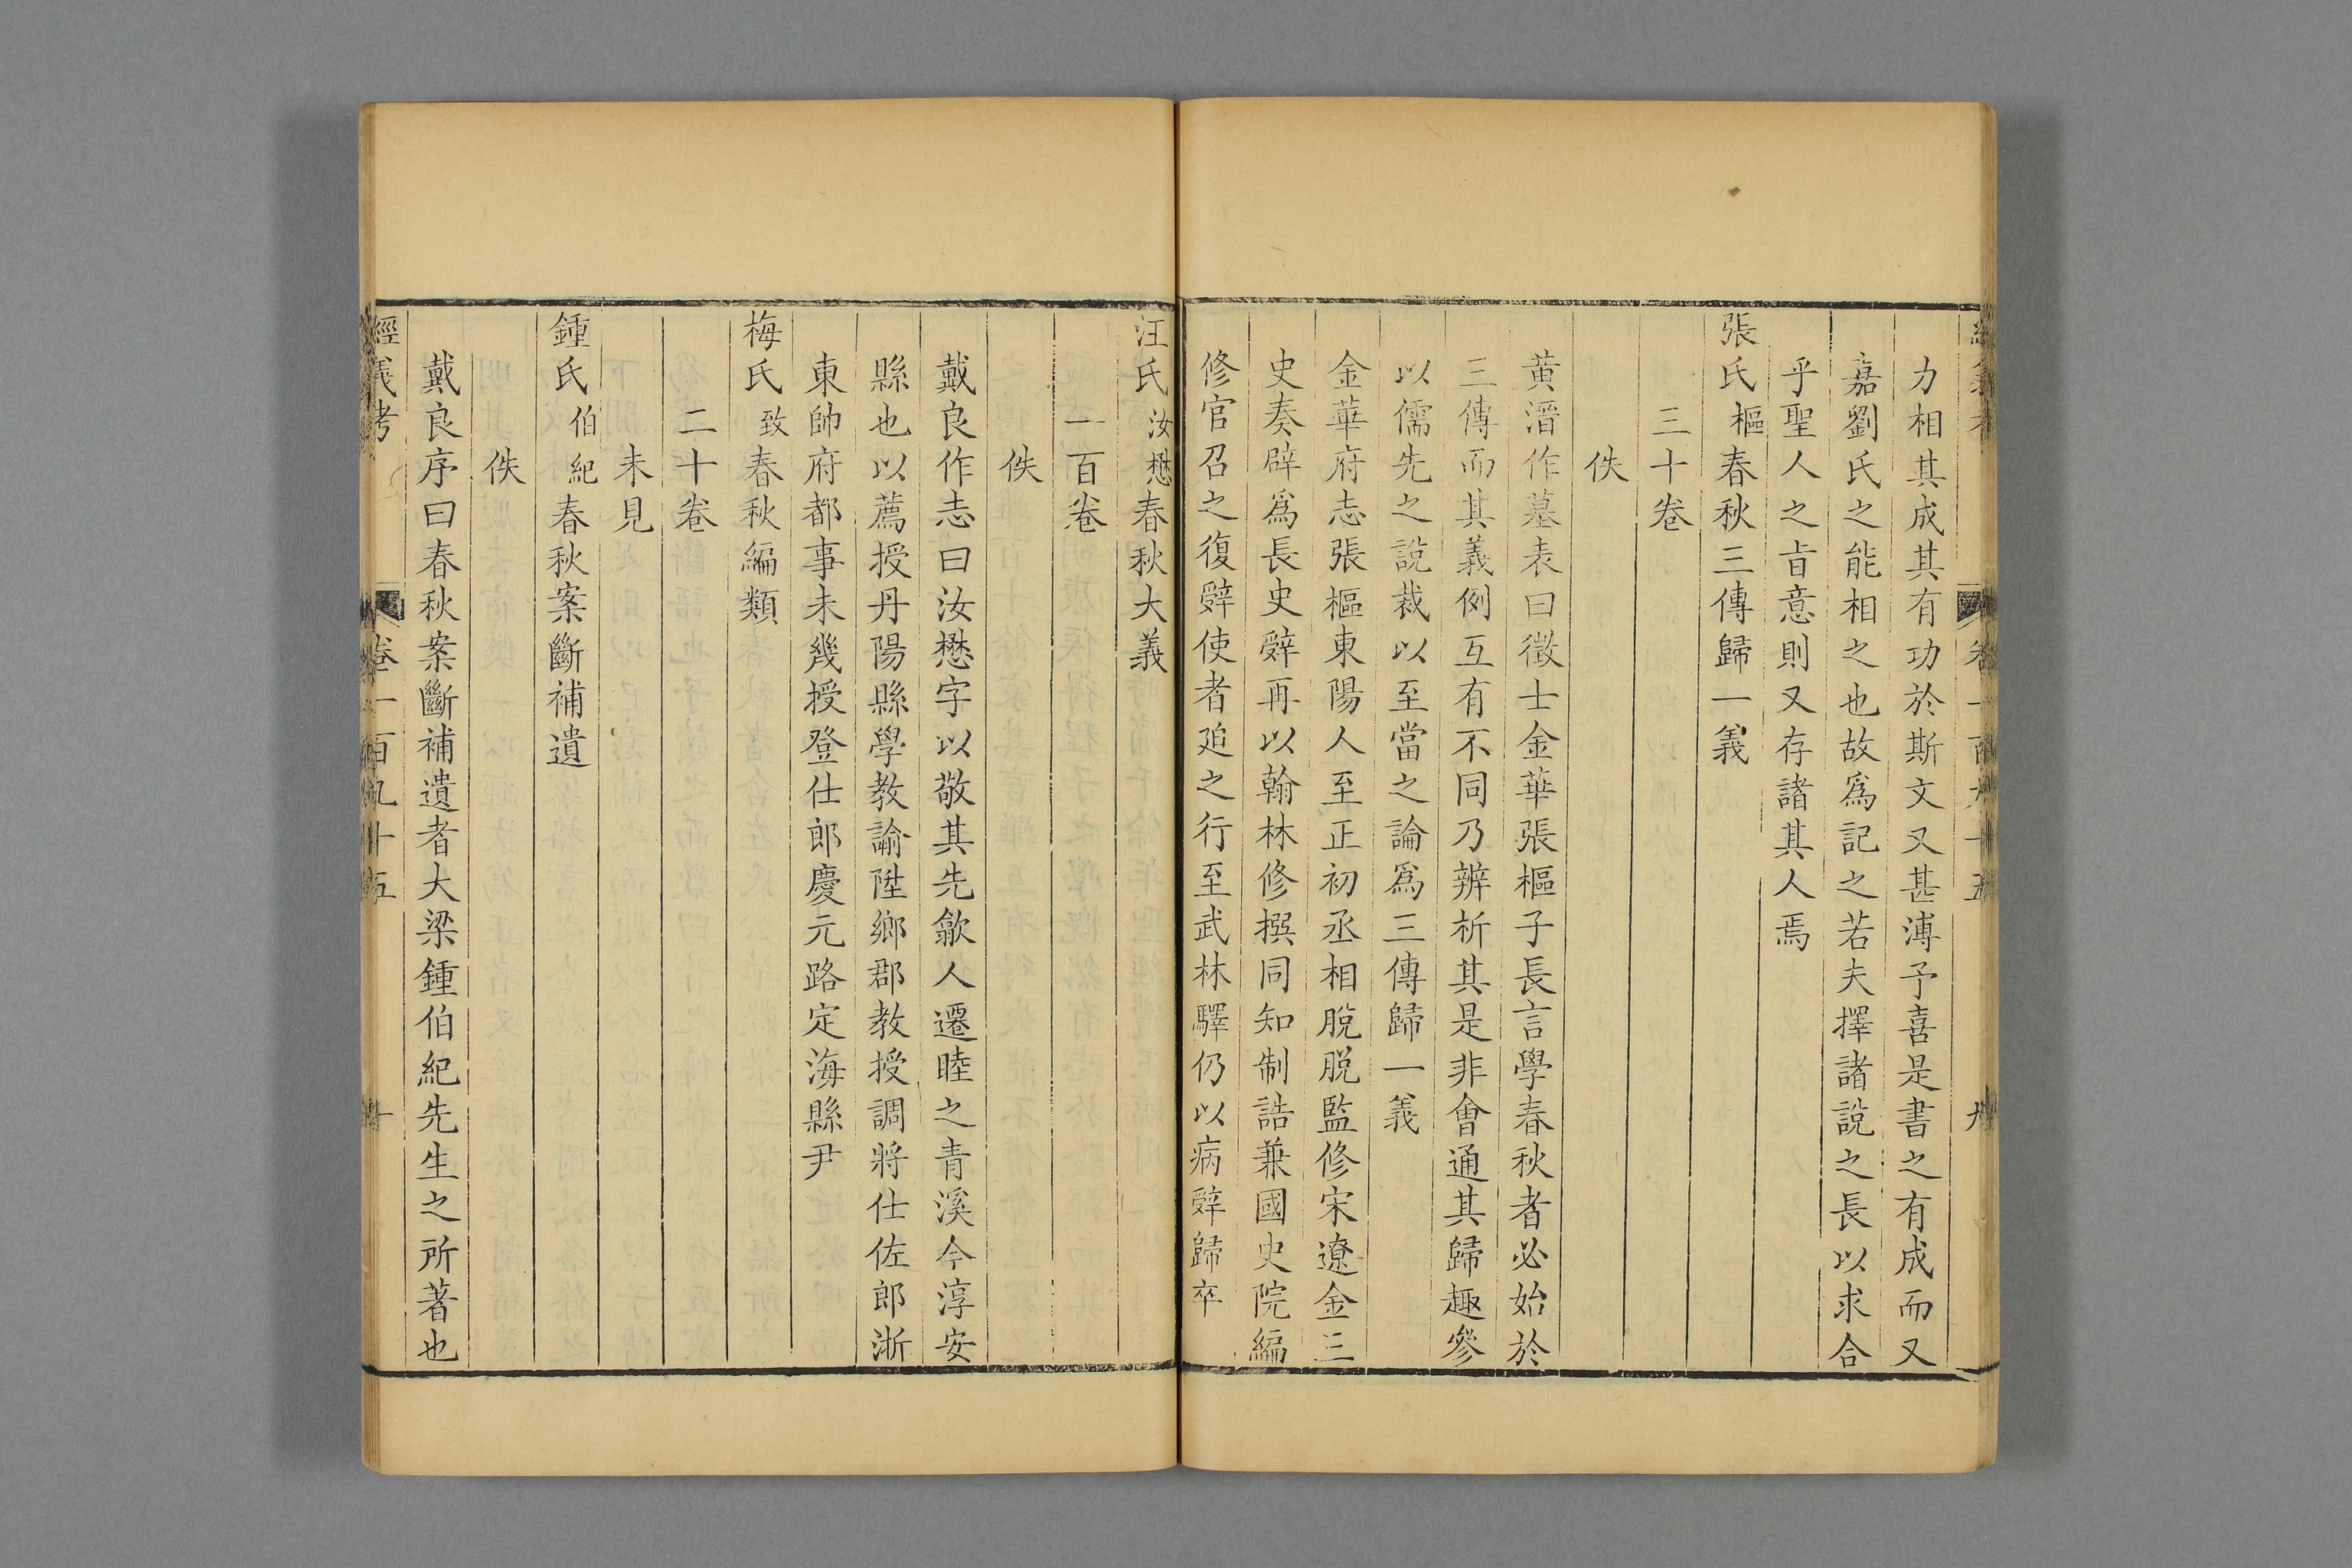 力相其成其有功於斯文又甚溥予喜是書之有成而又
嘉劉氏之能相之也故爲記之若夫擇諸說之長以求合
乎聖人之旨意則又存諸其人焉
張氏樞春秋三傳歸一義
三十卷
佚
黃溍作墓表曰徵士金華張樞子長言學春秋者必始於
三傳而其義例互有不同乃辨析其是非會通其歸趣參
以儒先之說裁以至當之論爲三傳歸一義
金華府志張樞東陽人至正初丞相脫脫監修宋遼金三
史奏辟爲長史辤再以翰林修撰同知制誥兼國史院編
修官召之復辤使者廹之行至武林驛仍以病辤歸卒
汪氏汝懋春秋大義
一百卷
佚
戴良作志曰汝懋字以敬其先歙人遷睦之青溪今淳安
縣也以薦授丹陽縣學教諭陞鄉郡教授調將仕佐郎浙
東帥府都事未幾授登仕郎慶元路定海縣尹
梅氏致春秋編類
二十卷
未見
鍾氏伯紀春秋案斷補遺
佚
戴良序曰春秋案斷補遺者大梁鍾伯紀先生之所著也
經義考 卷一百九十五 十